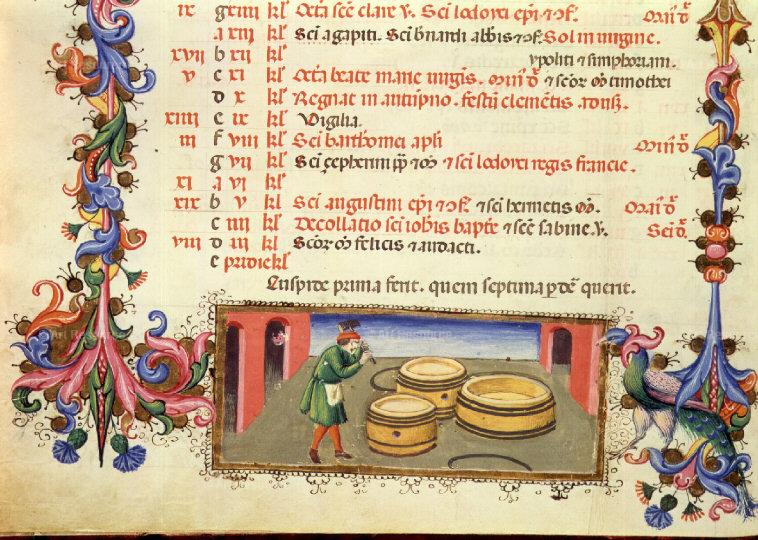 ix g xiiii kl' Octa sce clare v. Sci lodovci epi ⁊ ɔf. Mai. d'
a xiii kl' Sci agapiti. Sci bnardi abbis ⁊ ɔf. Sol in virgine.
ypoliti ⁊ simphoriani.
xvii b xii kl'
v c xi kl' Octa beate marie virgis. ⁊ scor timothei
d x kl' Regnat in antiipno. festu clemetis.
xiiii e ix kl' Vigilia.
iii f viii kl' Sci bartholomei apli
g vii kl' Sci çepherini pp ⁊ ⁊ sci lodovci regis francie.
xi a vi kl'
xix b v kl' Sci augustini epi ⁊ ɔf. ⁊ sci hermetis
c iiii kl' Decollatio sci iohis bapte ⁊ sce sabine. v.
viii d iii kl' Scor felicis ⁊ audacti.
e pridie kl'
Cuspide prima ferit. quem septima pde querit.